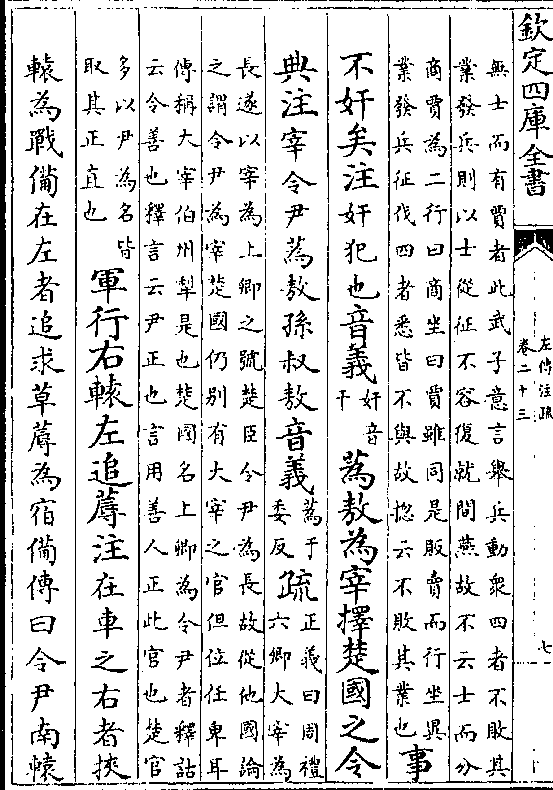 欽定四庫全書
左傳注疏
卷二十三
七
無士而有賈者此武子意言舉兵動衆四者不敗其
業發兵則以士從征不容復就問燕故不云士而分
商賈為二行曰商坐曰賈雖同是販賣而行坐異
業發兵征伐四者悉皆不與故惣云不敗其業也事
不奸矣注奸犯也音義奸音干蒍敖為宰擇楚國之令
典注宰令尹蒍敖孫叔敖音義蒍于委反疏正義曰周禮六卿大宰為
長遂以宰為上卿之號楚臣令尹為長故從他國論
之謂令尹為宰楚國仍别有大宰之官但位任卑耳
傳稱大宰伯州犁是也楚國名上卿為令尹者釋詁
云令善也釋言云尹正也言用善人正此官也楚官
多以尹為名皆取其正直也軍行右轅左追蓐注在車之右者挾
轅為戰備在左者追求草蓐為宿備傳曰令尹南轅